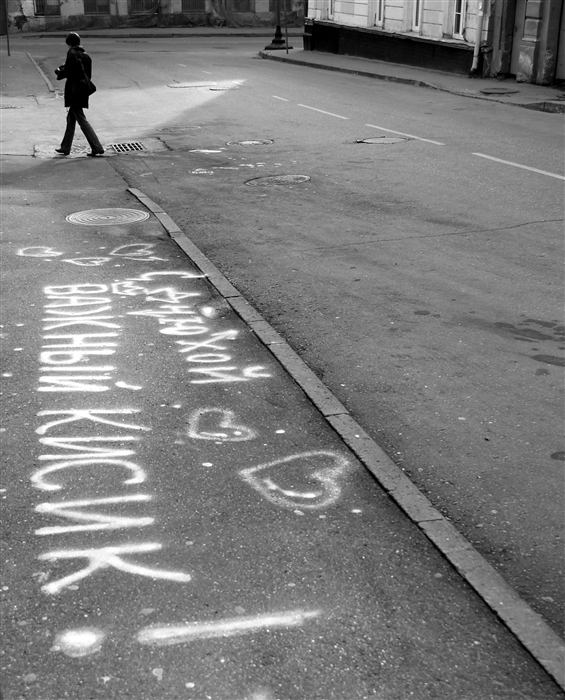 С Днюхой
ВАЖНЫЙ КИСИК!